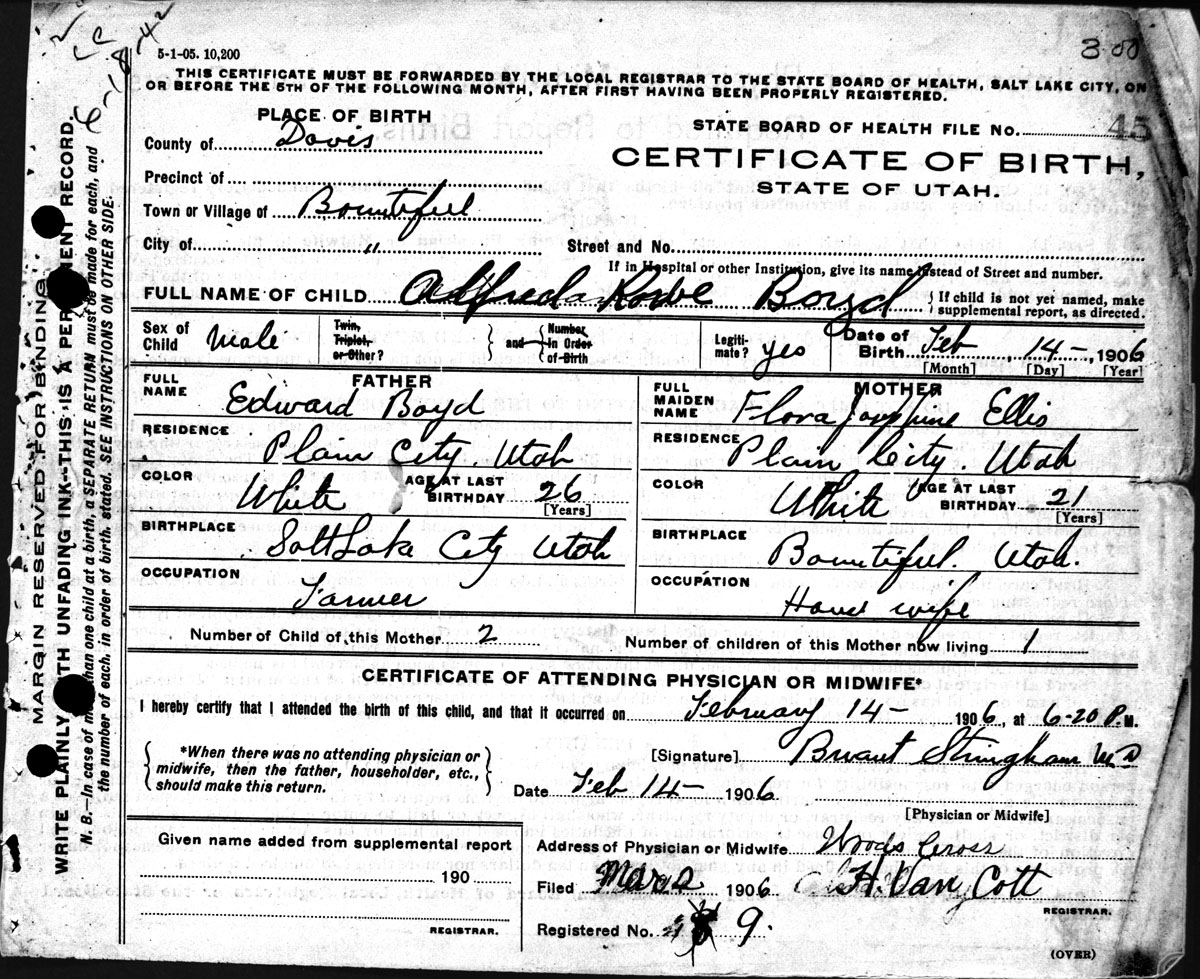 6-18-42
5-1-05. 10,200
3 00
THIS CERTIFICATE MUST BE FORWARDED BY THE LOCAL REGISTRAR TO THE STATE BOARD OF HEALTH, SALT LAKE CITY, ON
OR BEFORE THE 5TH OF THE FOLLOWING MONTH, AFTER FIRST HAVING BEEN PROPERLY REGISTERED.
PLACE OF BIRTH
County of Davis
Precinct of
Town or Village of Bountiful
City of "
STATE BOARD OF HEALTH FILE NO. 45
CERTIFICATE OF BIRTH,
STATE OF UTAH.
Street and No.
If in Hospital or other Institution, give its name instead of Street and number.
FULL NAME OF CHILD Alfreda Rowe Boyd { If child is not yet named, make
supplemental report, as directed.
Sex of Child Male
Twin, Triplet, or Other?
and Number in Order of Birth
Legitimate? yes
Date of Birth Feb 14-, 1906
[Month] [Day] [Year]
FATHER
FULL NAME Edward Boyd
RESIDENCE Plain City. Utah
COLOR White AGE AT LAST BIRTHDAY 26
[Years]
BIRTHPLACE Salt Lake City Utah
OCCUPATION Farmer
MOTHER
FULL MAIDEN NAME Flora Josephine Ellis
RESIDENCE Plain City. Utah
COLOR White AGE AT LAST BIRTHDAY 21
[Years]
BIRTHPLACE Bountiful. Utah.
OCCUPATION House wife
Number of Child of this Mother 2 Number of children of this Mother now living 1
CERTIFICATE OF ATTENDING PHYSICIAN OR MIDWIFE*
I hereby certify that I attended the birth of this child, and that it occurred on February 14- 1906, at 6-20 P.M.
*When there was no attending physician or
midwife, then the father, householder, etc.,
should make this return.
[Signature] Briant Stringham MD
Date Feb 14- 1906
[Physician or Midwife]
Given name added from supplemental report
190
REGISTRAR.
Address of Physician or Midwife Woods Cross
Filed Mar 2 1906 H. Van Cott
REGISTRAR.
Registered No. 9.
(OVER)
MARGIN RESERVED FOR BINDING
WRITE PLAINLY WITH UNFADING INK--THIS IS A PERMANENT RECORD.
N. B.—In case of more than one child at a birth, a SEPARATE RETURN must be made for each, and
the number of each, in order of birth, stated. SEE INSTRUCTIONS ON OTHER SIDE.